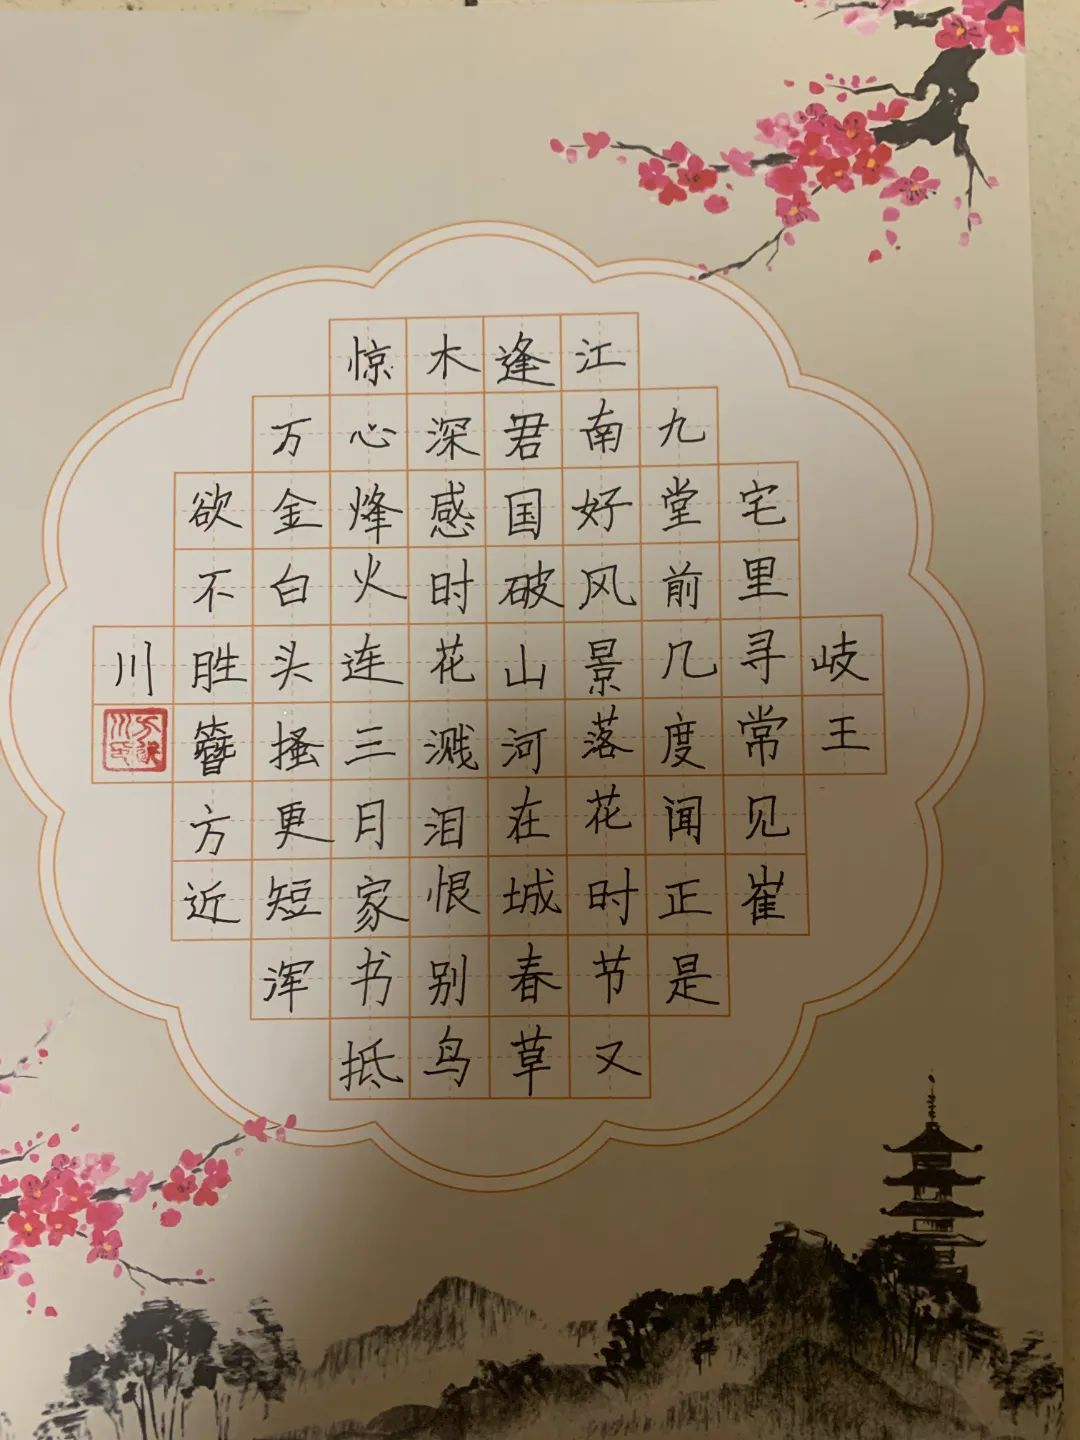 岐王
宅里寻常见崔
九堂前几度闻正是
江南好风景落花时节又
逢君国破山河在城春草
木深感时花溅泪恨别鸟
惊心烽火连三月家书抵
万金白头搔更短浑
欲不胜簪方近
川